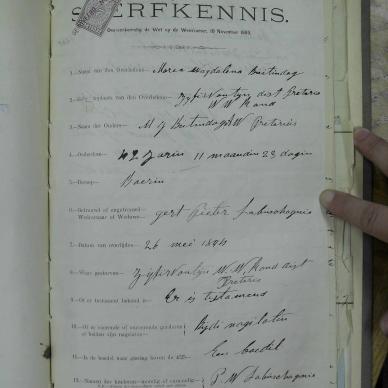 STERFKENNIS.
Overeenkomstig de Wet op de Weeskamer, 10 November 1885.
1.—Naam van den Overledene— Maria Magdalena Buitindag
2.— plaats van den Overledene— Zijferfontijn dist Pretoria
W W Rand
3.—Naam der Ouders— M J Buitindag & W Pretorius
4.—Ouderdom— 42 Jarin 11 maandin 23 dagin
5.—Beroep— Boerin
6.—Getrouwd of ongetrouwd—
Weduwnaar of Weduwe— gert Pieter Labuschagnie
7.—Datum van overlijden— 26 mei 1894
8.—Waar gestorven— Zijferfontijn W. W. Rand dist
Pretoria
9.—Of er testament bekend is— Er is testament
10.—Of er roerende of onroerende goederen
of beiden zijn nagelaten—
11.—Is de boedel naar gissing boven de £ Een boedel
12.—Namen der kinderen—
P W Labuschagnie